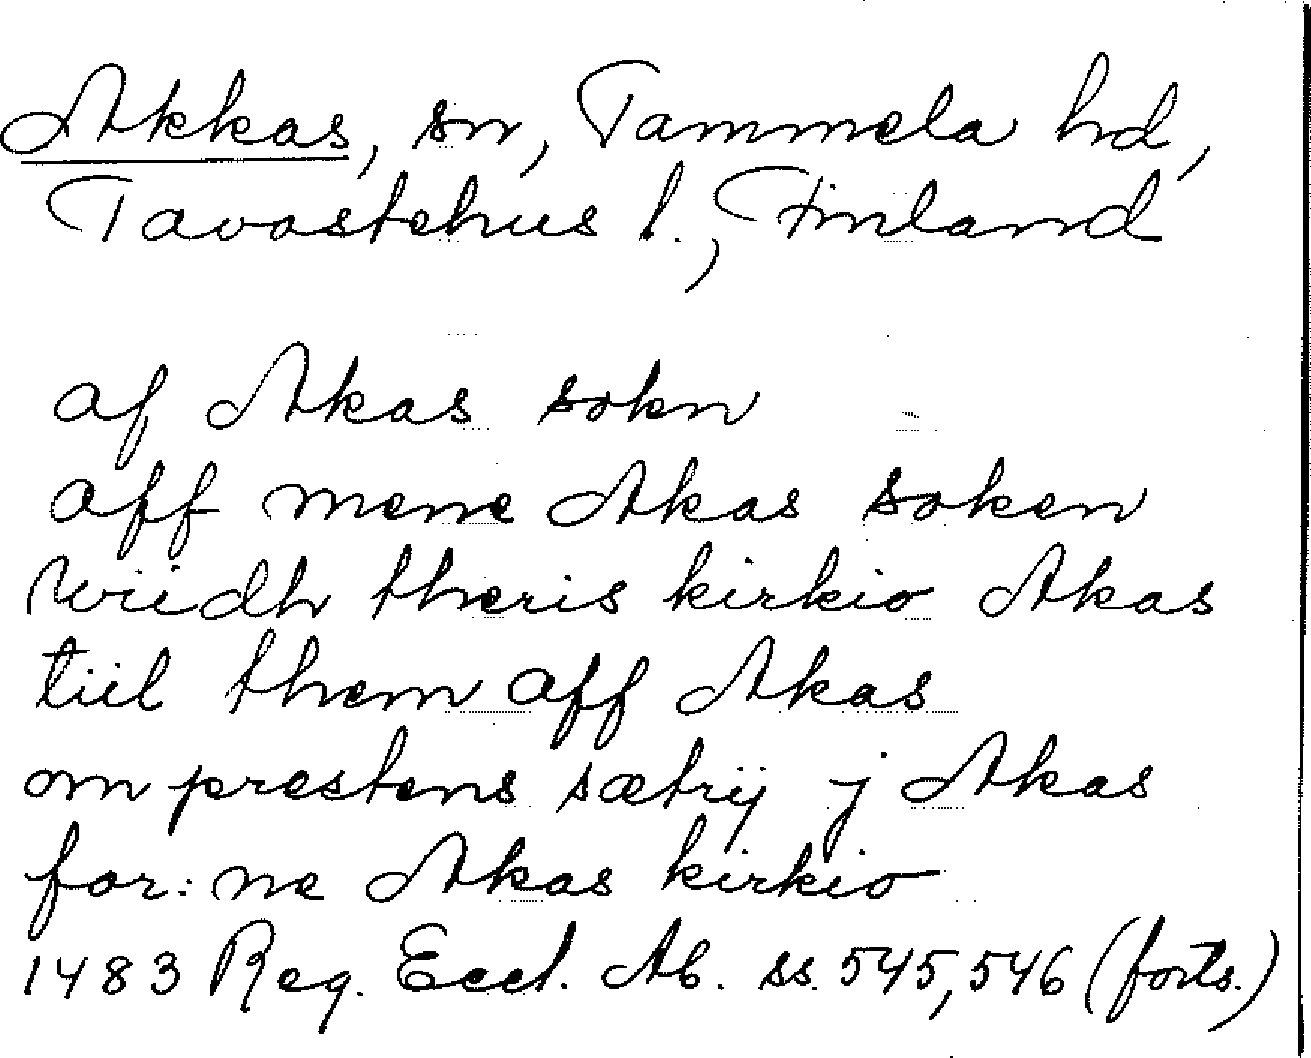 Akkas, sn, Tammela hd,
Tavastehus l., Finland
af Akas sokn
aff mene Akas soken
wiidh theris kirkio Akas
tiil them aff Akas
om prestens sætrij j Akas
for:ne Akas kirkio
1483 Reg. Eccl. Ab. ss. 545, 546 (forts.)